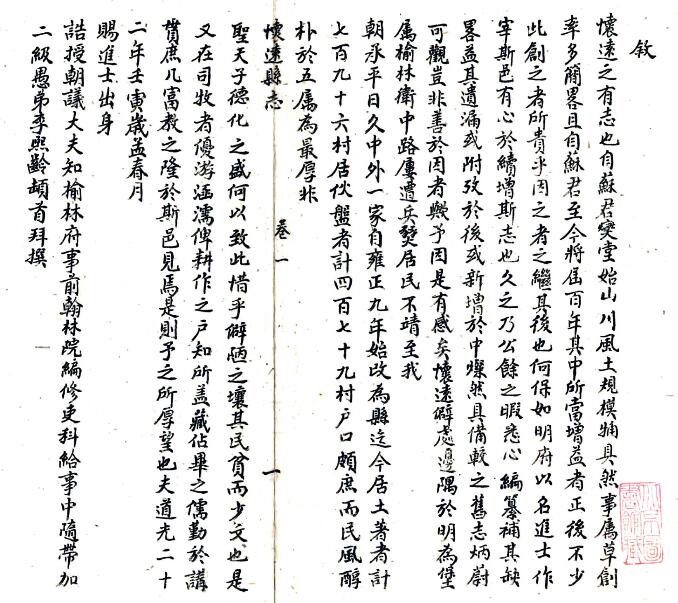 敘
懷遠之有志也自蘇君燮堂始山川風土規模犓具然事屬草創
率多簡畧且自蘇君至今將屆百年其中所當增益者正後不少
此創之者所貴乎因之者之繼其後也何保如明府以名進士作
宰斯邑有心於續增斯志也久之乃公餘之暇悉心編纂補其缺
畧益其遺漏或附攷於後或新增於中燦然具備較之舊志炳蔚
可觀豈非善於因者歟予因是有感矣懷遠僻處邊隅於明為堡
属榆林衛中路屢遭兵燹居民不靖至我
朝承平日久中外一家自雍正九年始改為縣迄今居土著者計
七百九十六村居伙盤者計四百七十九村户口頗庶而民風醇
朴於五属為最厚非
懷遠縣志
卷一
一
聖天子德化之盛何以致此惜乎僻陋之壤其民貧而少文也是
又在司牧者優游涵濡俾耕作之户知所盖藏佔畢之儒勤於講
貫庶几富教之隆於斯邑見焉是則予之所厚望也夫道光二十
二年壬寅歲孟春月
賜進士出身
誥授朝議大夫知榆林府事前翰林院編修吏科給事中隨帶加
二級愚弟李熙齡頓首拜撰